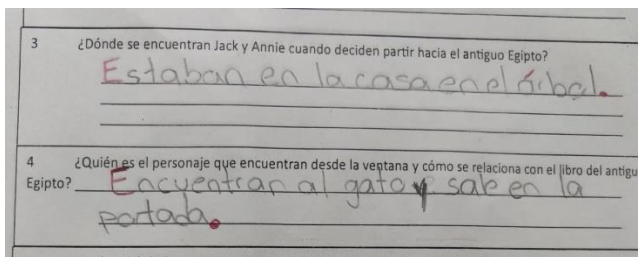 3 ¿Dónde se encuentran Jack y Annie cuando deciden partir hacia el antiguo Egipto?
Estaban en la casa en el árbol.
4 ¿Quién es el personaje que encuentran desde la ventana y cómo se relaciona con el libro del antigu
Egipto? Encuentran al gato y sale en la
portada.